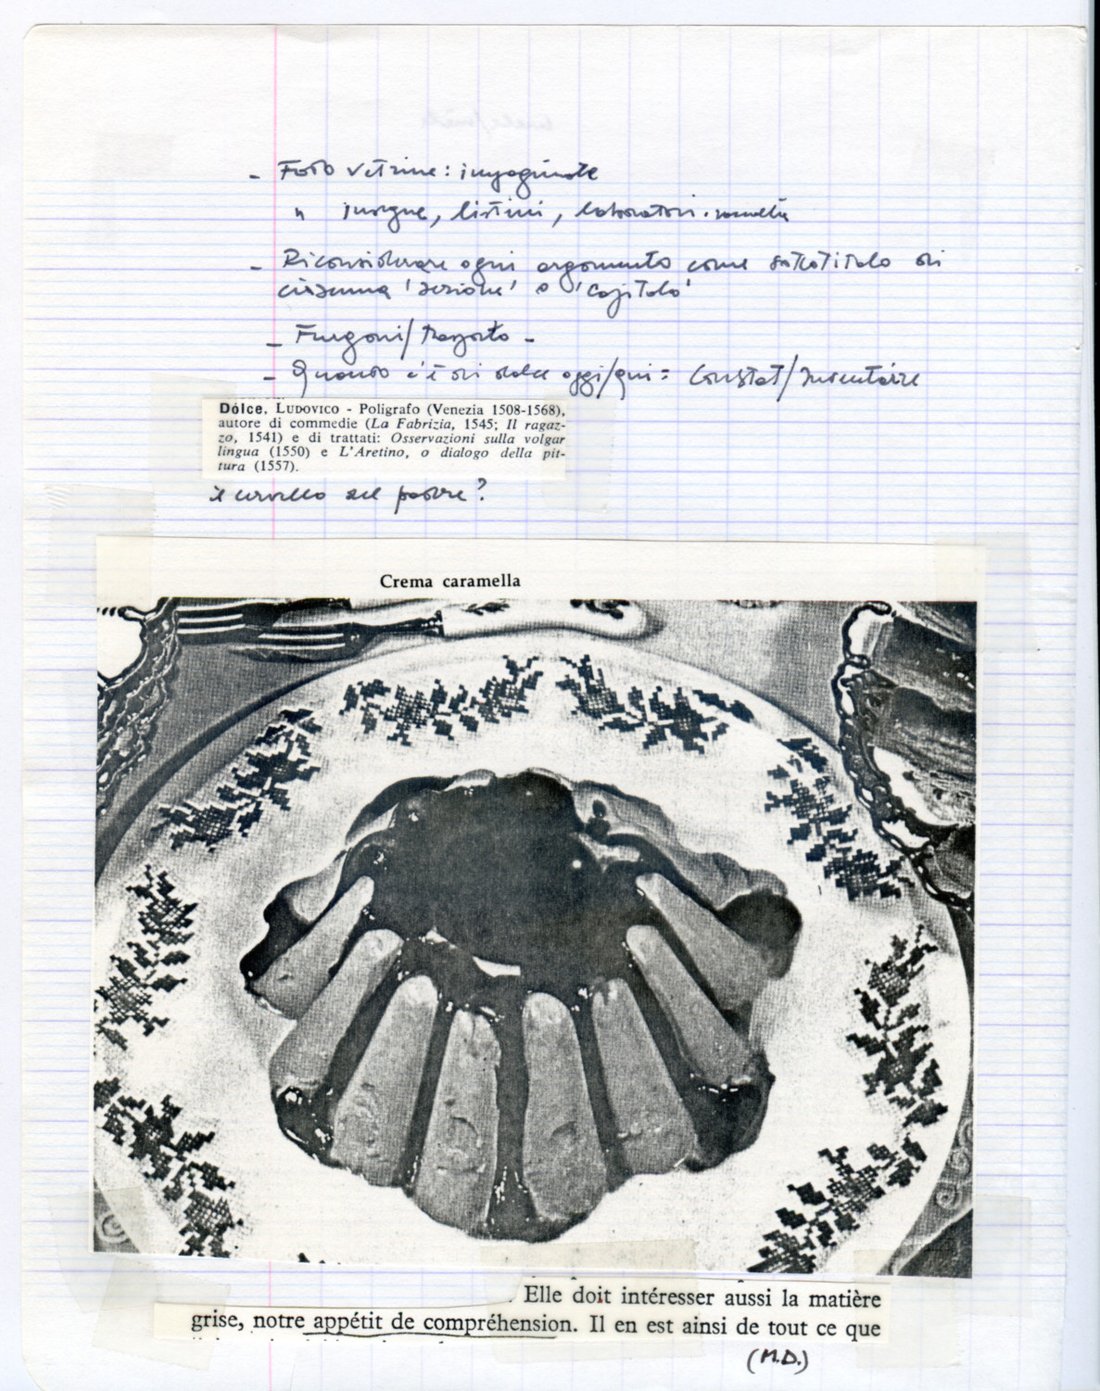 - Foto vetrine: impaginate
" insegne, listini, laboratori
- Riconsiderare ogni argomento come sottotitolo di
ciascuna 'sezione' o 'capitolo'
- Furgoni/trasporto -
- Quanto c'è di dolce oggi/qui: Constat/Inventaire
Dólce, LUDOVICO - Poligrafo (Venezia 1508-1568),
autore di commedie (La Fabrizia, 1545; Il ragaz-
zo, 1541) e di trattati: Osservazioni sulla volgar
lingua (1550) e L'Aretino, o dialogo della pit-
tura (1557).
il cervello del padre?
Crema caramella
. Elle doit intéresser aussi la matière
grise, notre appétit de compréhension. Il en est ainsi de tout ce que
(M.D.)